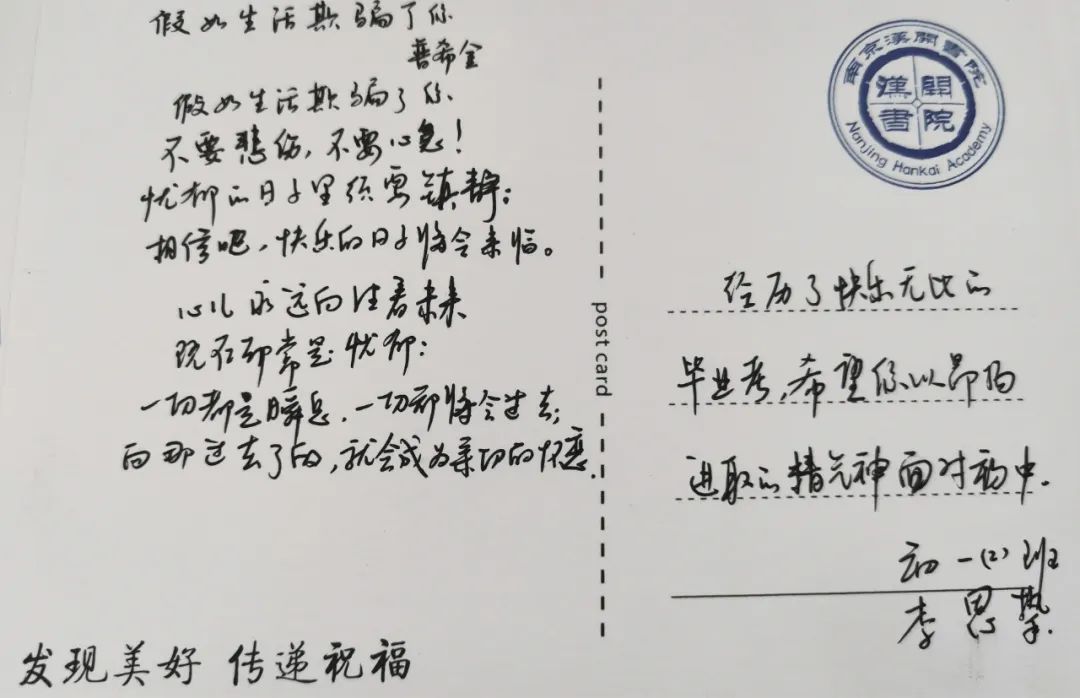 假如生活欺骗了你
普希金
假如生活欺骗了你
不要悲伤，不要心急！
忧郁的日子里须要镇静：
相信吧，快乐的日子将会来临。
心儿永远向往着未来
现在却常是忧郁：
一切都是瞬息，一切都将会过去；
而那过去了的，就会成为亲切的怀恋.
发现美好 传递祝福
post card
南京漢開書院
漢開書院
Nanjing Hankai Academy
经历了快乐无比的
毕业考，希望你以昂扬
进取的精气神面对初中.
初一(2)班
李思